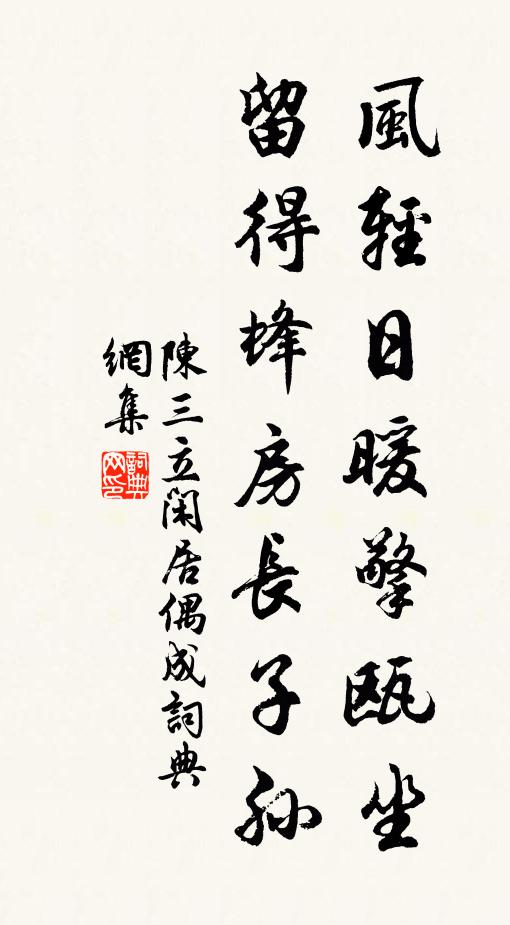 風輕日暖擎甌坐
留得蜂房長子孫
陳三立閑居偶成詞典
網集
詞典
网印